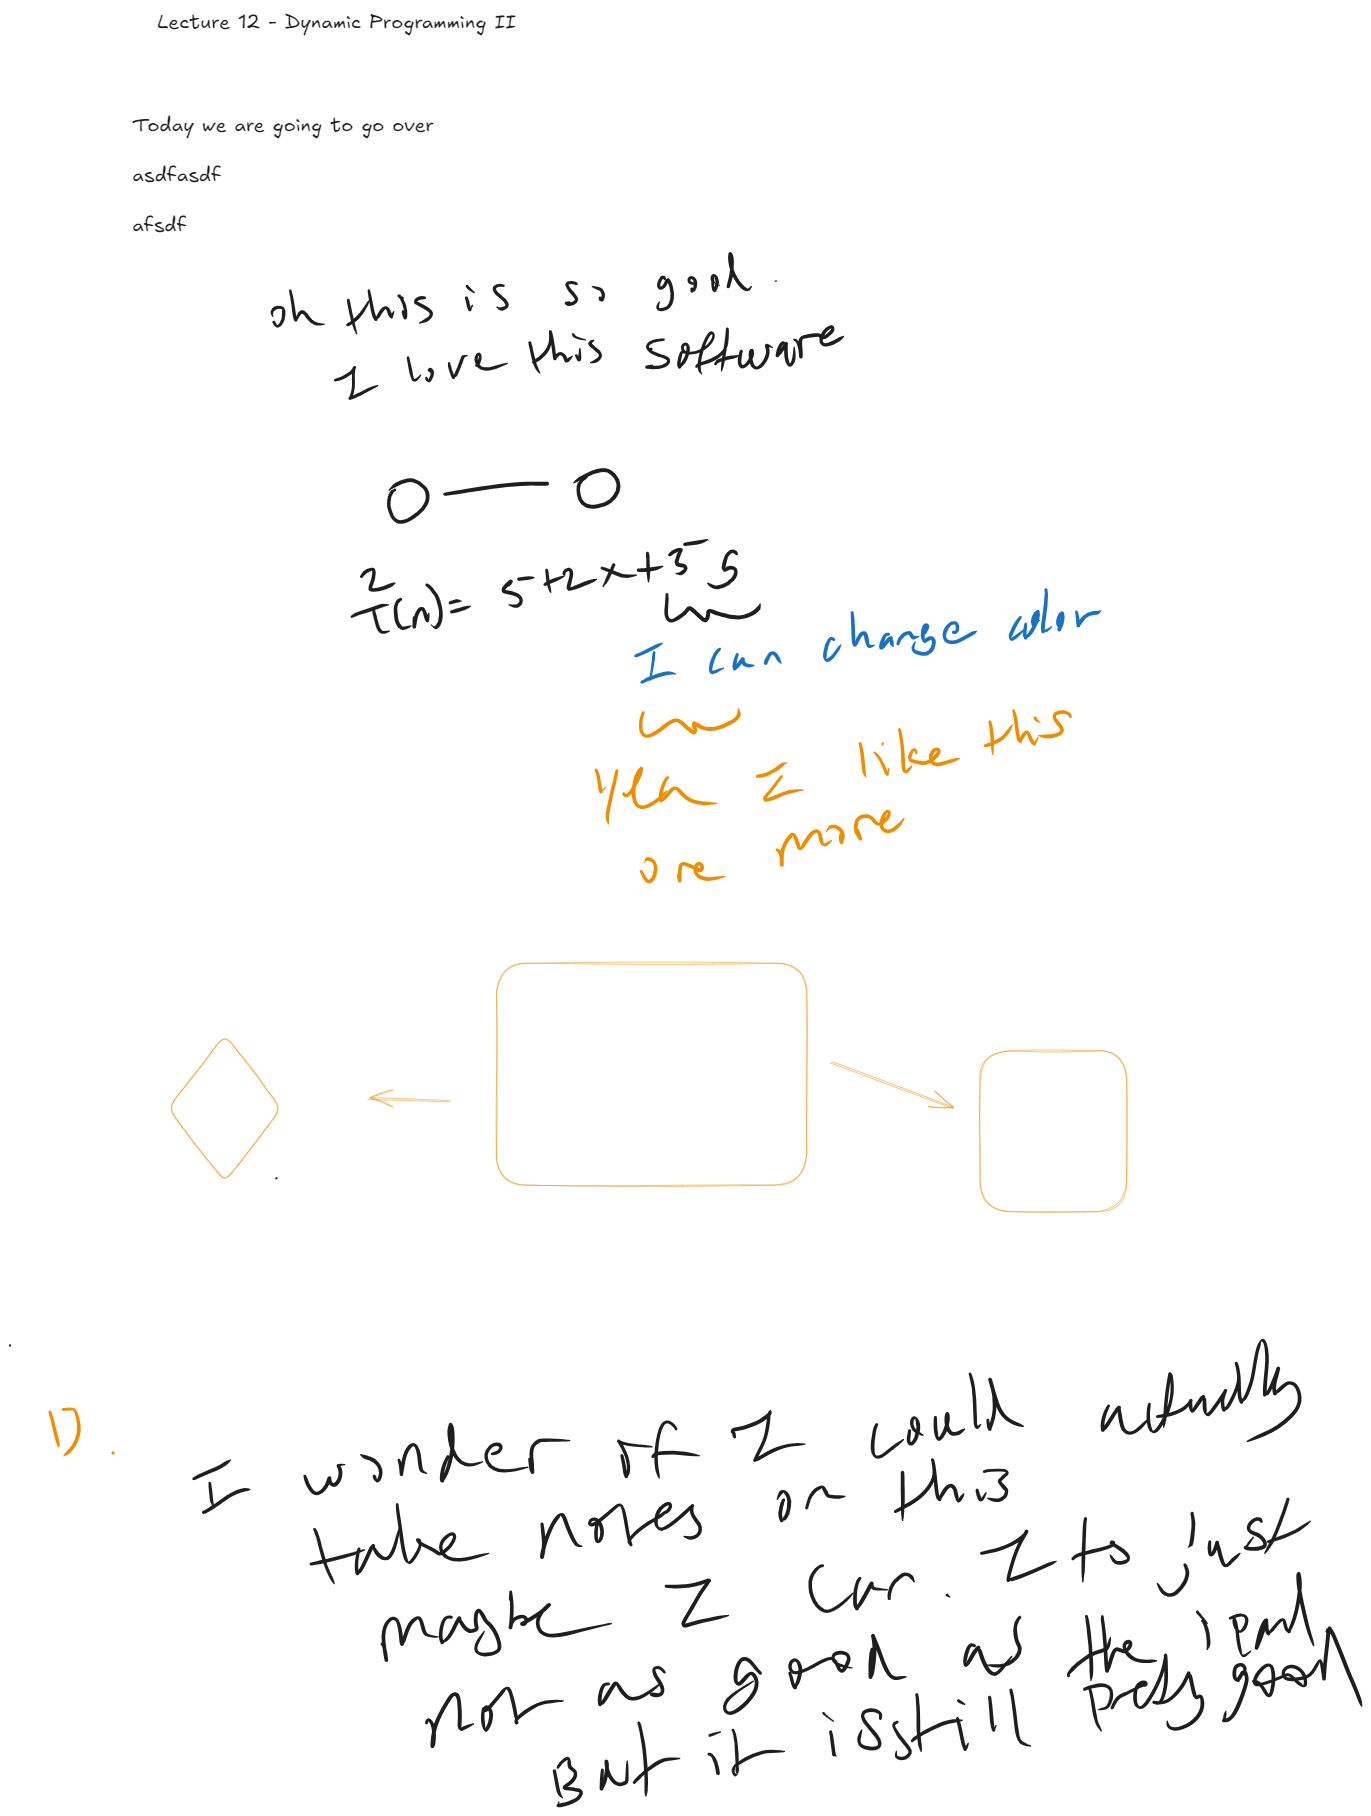 Lecture 12 - Dynamic Programming II
Today we are going to go over
asdfasdf
afsdf
oh this is so good.
I love this software
2
T(n)= 5+2x+35 5
I can change color
yea I like this
one more
1).
I wonder if I could actually
take notes on this
maybe I can. Its just
not as good as the ipad
But it is still pretty good